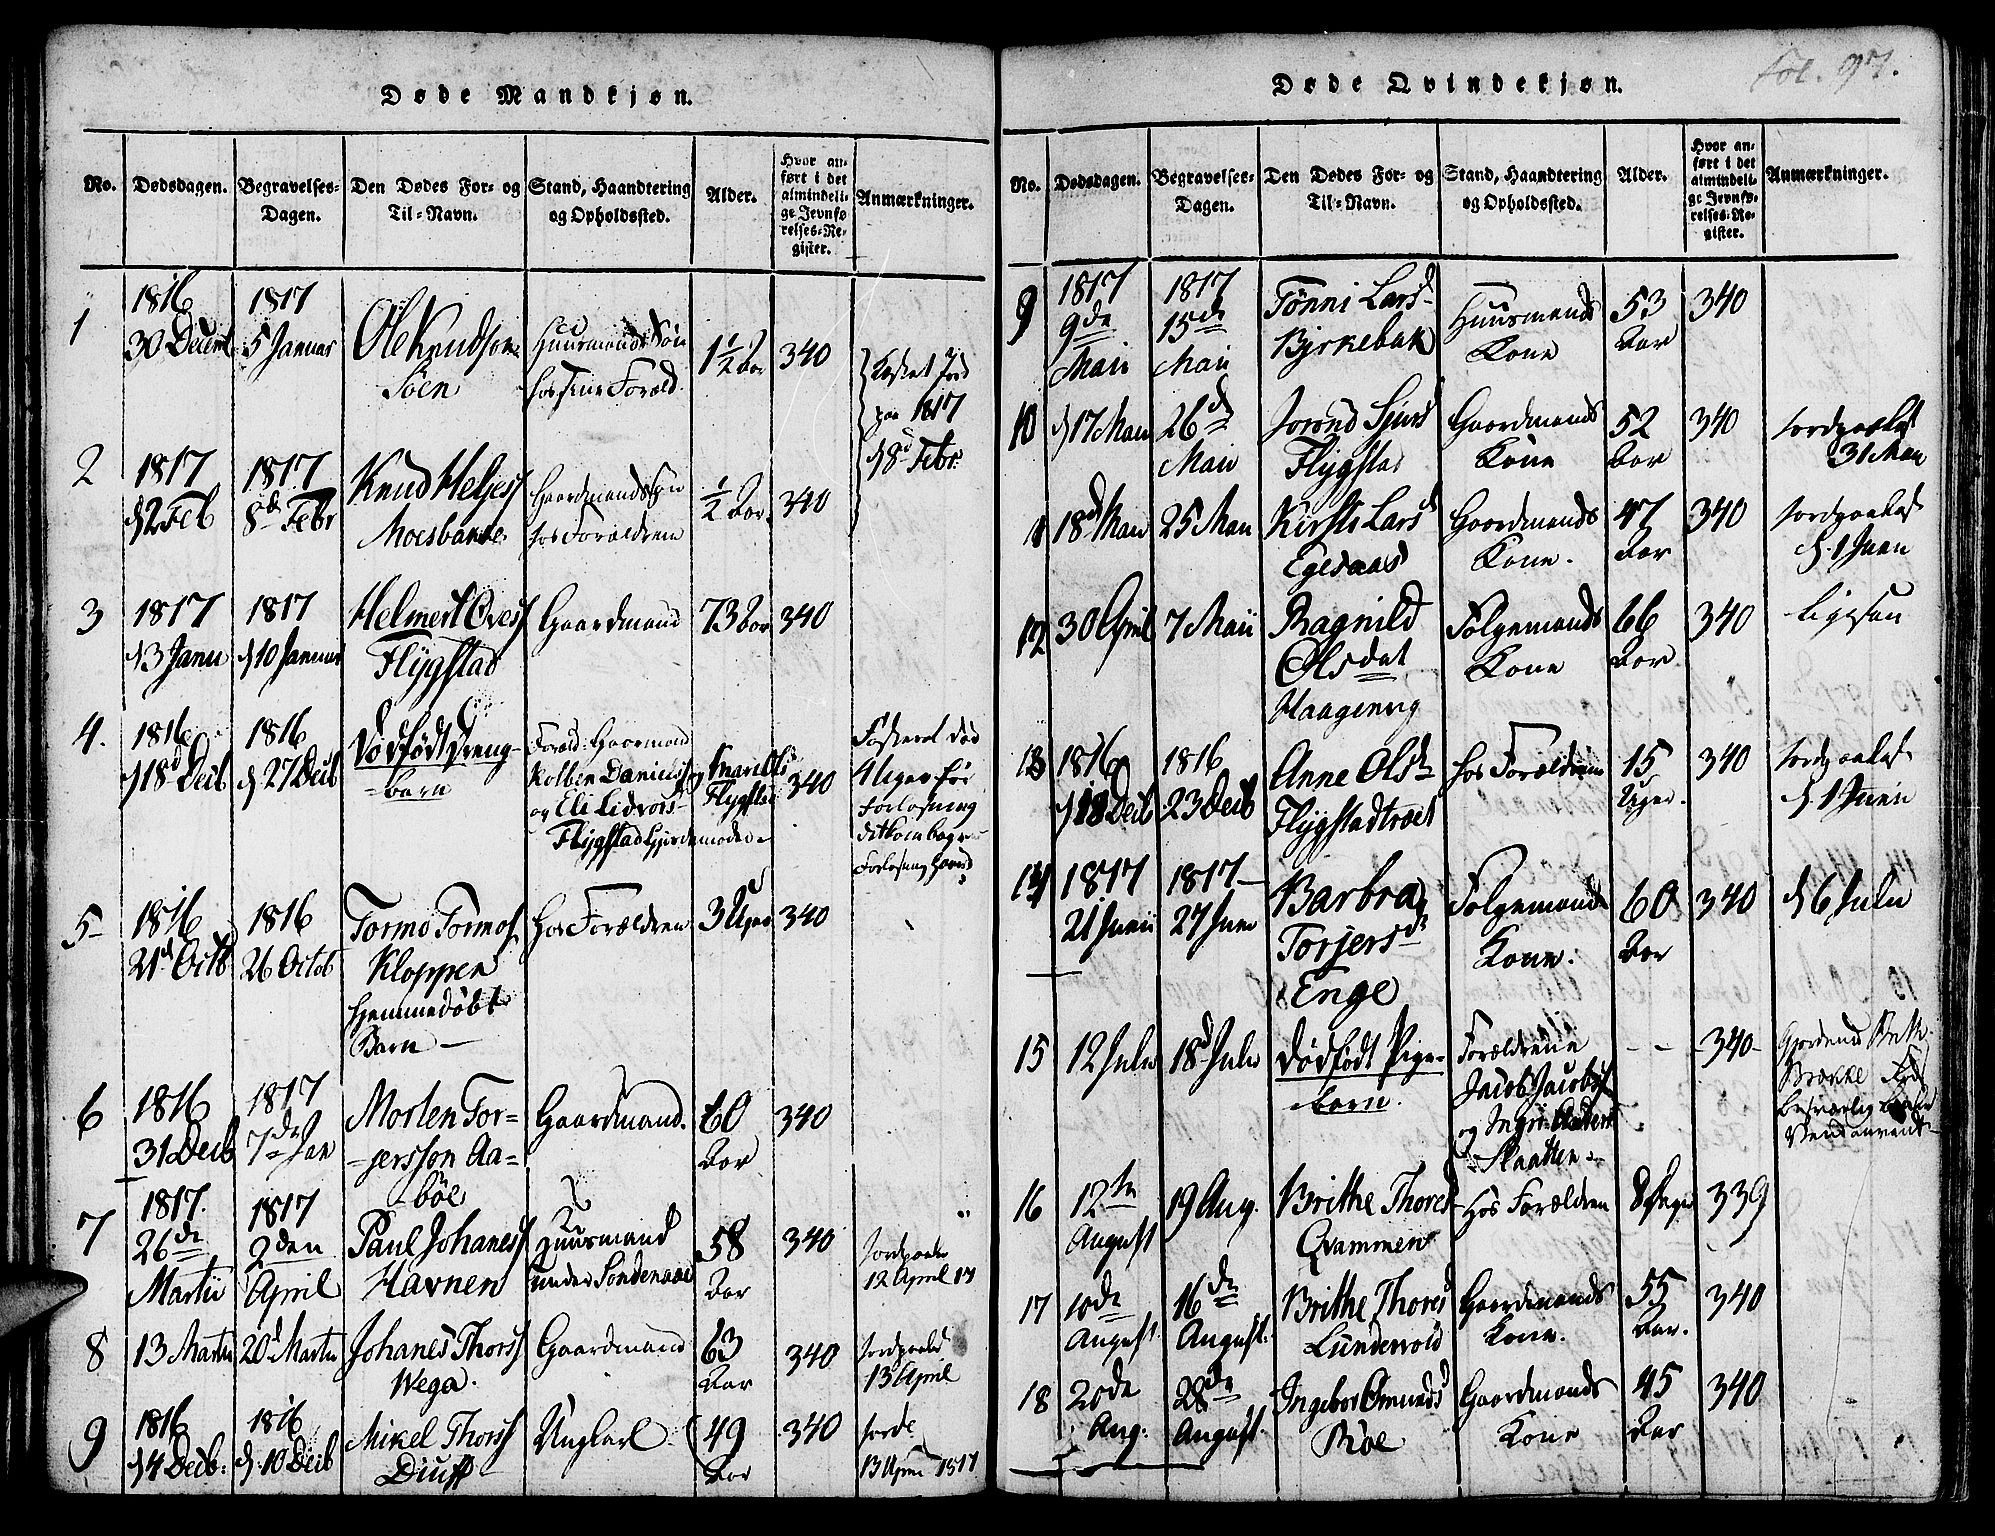 Døde Mandkjøn.
No. Dødsdagen. Begravelses-Dagen. Den Dødes For- og Til-Navn. Stand, Haandtering og Opholdssted. Alder. Hvor anført i det almindelige Jevnførelses-Register. Anmærkninger.
1 1816 30 Decem 1817 5 Januar Ole Knudson Søen Huusmands Søn hos sine Foræld. 1½ Aar 340
paa 1817
d 8d Febr.
2 1817 d 2 Feb 1817 8de Febr Knud Heljess Moesbakke Gaardmands Søn hos Forældrene ½ Aar 340
3 1817 d 3 Janu 1817 d 10 Januar Helmert Øvess Flygstad Gaardmand 73 Aar 340
4. 1816 d 18d Decb 1816 d 27 Decb Dødfødt Drengbarn
Foræld: Gaarmand
Kolben Daniels
og Eli Lidvors
Flygstad Gjordemoder
340
4 Uger før
Forløsning
5 1816 21d Octb 1816 26 Octob Tormo Tormos Kloppen hjemmedøbt Barn Hos Forældren 3 Uger 340
6 1816 31 Decb 1817 7de Jan Morten Torjersson Aabøe Gaardmand. 60 Aar 340
7 1817. 26de Martii 1817 2den April Paul Johaness Havnen Huusmand under Søndenaae 58 Aar 340 Jordpaakt 12 April 17
8 13 Martii 20d Martii Johanes Thorss Wega. Gaardmand 63 Aar 340 Jordpaakt 13 April
9 1816 d 4 Decb. 1816 d. 10 Decb Mikel Thorss Diuss Ungkarl 49 Aar 340 Jorde 13 April 1817
Døde Qvindekjøn.
fol. 97.
No. Dødsdagen. Begravelses-Dagen. Den Dødes For- og Til-Navn. Stand, Haandtering og Opholdssted. Alder. Hvor anført i det almindelige Jevnførelses-Register. Anmærkninger.
9 1817 9de Maii 1817 15de Maii Tønni Larsd Byrkebak Huusmands Kone 53 Aar 340
10 d 17 Maii 26d Maii Jorond Sjursd Flygstad Gaardmands Kone 52 Aar 340 Jordpaakast 31 Maii
11 18d Maii 25 Maii Kirsti Larsd Egesaas Gaardmands Kone. 47 Aar 340 Jordpaakast d. 1 Junii
12 30 April 7 Maii Ragnild Olsdat Haagenvig Følgemands Kone 66 Aar 340 ligesaa
13 1816 d 18 Decb 1816 23 Decb Anne Olsd Flygstadtræt hos Forældrene 15 Uger. 340 Jordpaakast d. 1 Junii
14 1817 21 Junii 1817 27 Junii Barbra Torjersd Enge Følgemands Kone. 60 Aar 340 d 6 Julii
15 12 Julii 18d Julii Dødfødt Pigebarn. Forældrene Jacob Jacobs og Ingri Anders Slaatten 340
16 12te August 19 Aug. Brithe Thoresd Qvammen Hos Forældren 8 Dage 339
17 10de August 16de August. Brithe Thoresd Lundevold Gaardmands Kone. 55 Aar. 340
18 20de Aug. 28de August. Ingebor Omundsd Roe Gaardmands Kone 45 Aar 340